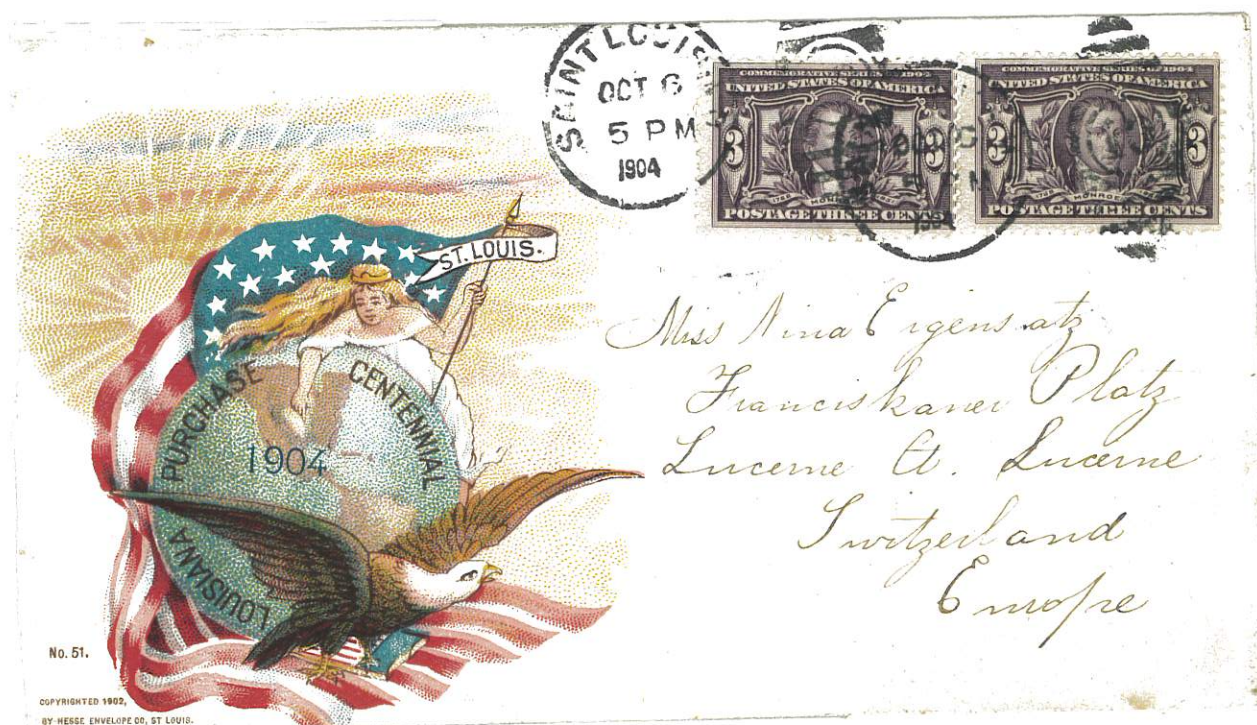 SAINT LOUIS
OCT 6
5 PM
1904
COMMEMORATIVE SERIES OF 1904
UNITED STATES OF AMERICA
3 3
MONROE
POSTAGE THREE CENTS
COMMEMORATIVE SERIES OF 1904
UNITED STATES OF AMERICA
3 3
MONROE
POSTAGE THREE CENTS
1904
ST. LOUIS.
LOUISIANA PURCHASE CENTENNIAL
1904
Miss Nina Eigensatz
Franciskaner Platz
Lucerne Ct. Lucerne
Switzerland
Europe
No. 51.
COPYRIGHTED 1902,
BY HESSE ENVELOPE CO, ST LOUIS.